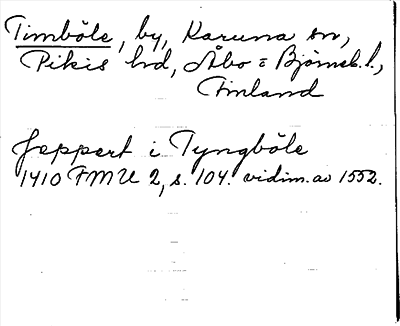 Timböle, by, Karuna sn,
Pikis hd, Åbo = Björneb. l.,
Finland
Jeppert i Tyngböle
1410 FMU 2, s. 104. vidim. av 1552.